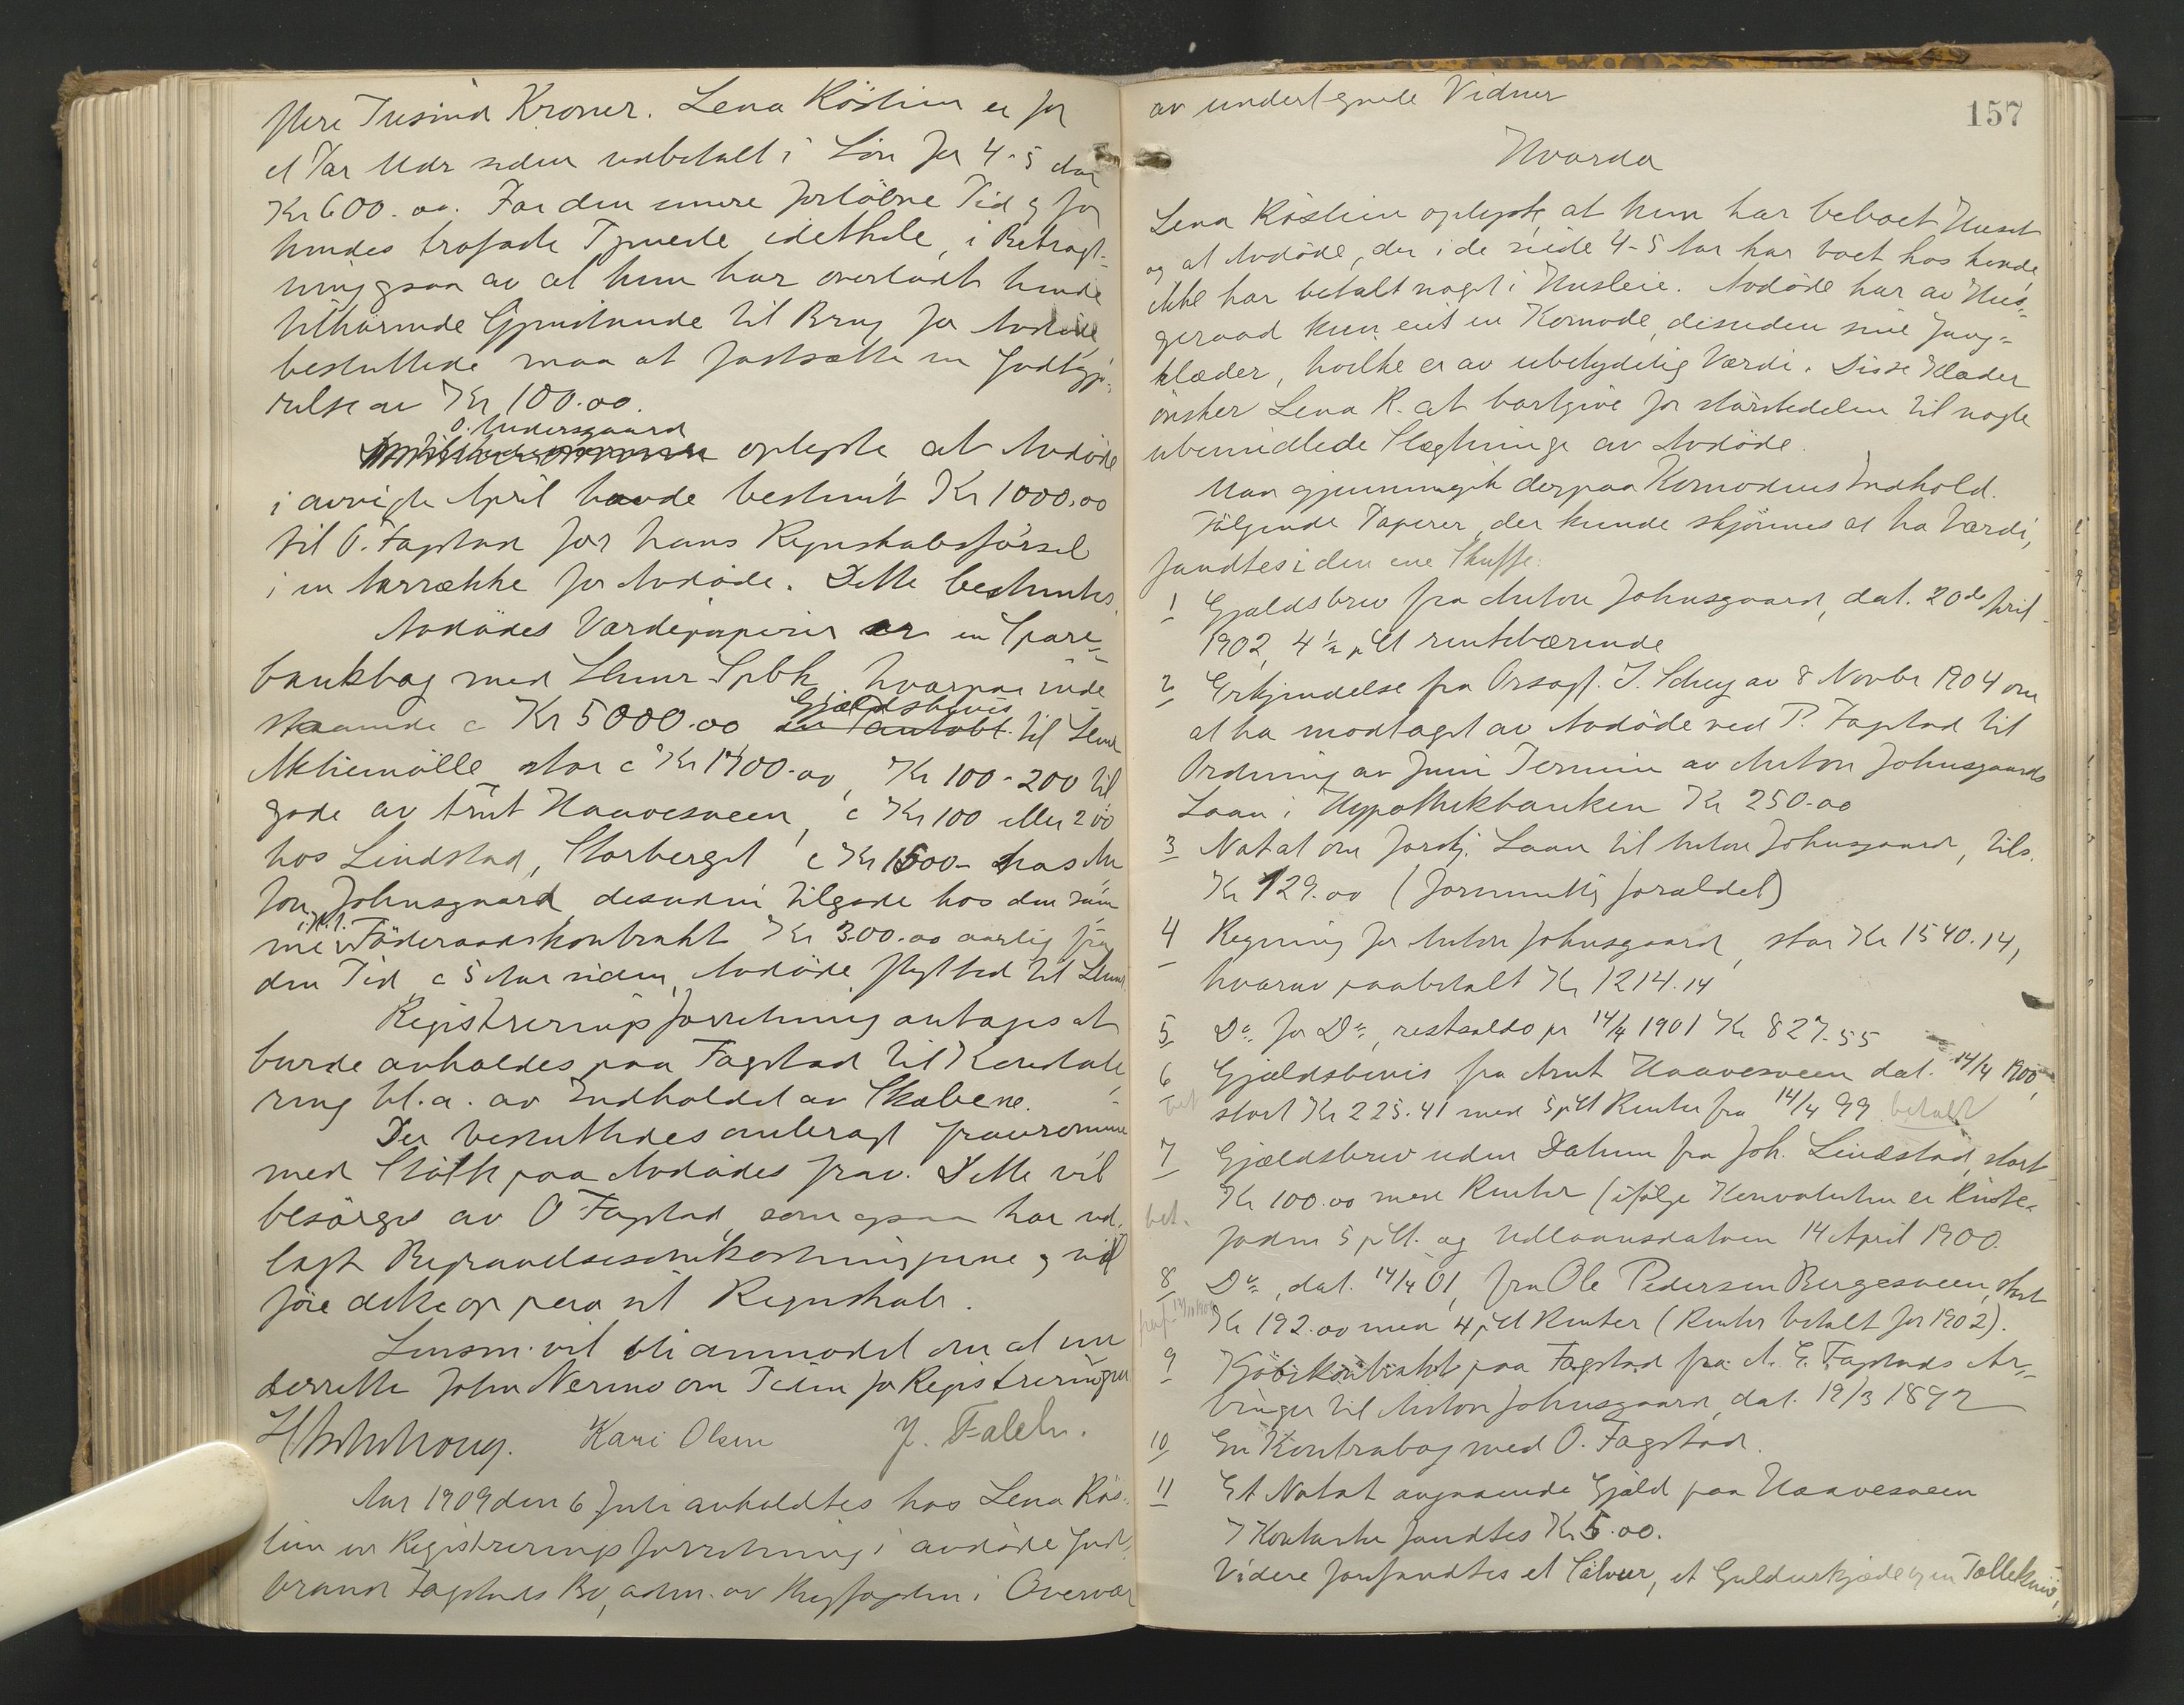 flere Tusind Kroner. Lena Röslien er for
et Par Mdr siden udbetalt i Løn for 4-5 Aar
Kr 600.00. For den senere forløbne Tid og for
hendes trofaste Tjeneste idethele, i Betragt-
ning ogsaa av at hun har overladt hende
tilhørende Gjenstande til Brug for Avdøde,
besluttedes man at fastsætte en Godtgjø-
relse av Kr 100.00.
O. Undersgaard
oplyste, at Avdøde
i avvigte April havde bestemt Kr 1000.00
til O. Fagstad for hans Regnskabsførsel
i en Aarrække for Avdøde. Dette besluttes.
Avdødes Værdipapirer er en Spare-
bankbog med Spbk, hvorpaa inde
staaende c Kr 5000.00 Gjældsbevis
en Pantobl. til
Aktiemølle stor c Kr 1400.00, Kr 100-200 til
gode av Arnt Haavesveen, c Kr 100 eller 200
hos Lindstad, Storberget c Kr 1500- hos An
ton Johnsgaard desuden tilgode hos den sam
me iflg. Föderaadskontrakt Kr 300.00 aarlig fra
den Tid, c 5 Aar siden, Avdøde flyttet til
Registreringsforretning antages at
burde avholdes paa Fagstad til Konstate
ring bl.a. av Indholdet av Skabene.
Der besluttedes anbragt
med Støtte paa Avdødes Grav. Dette vil
besørges av O Fagstad, som ogsaa har ud-
lagt Begravelsesomkostningerne og vil
føre dette op paa sit Regnskab.
Lensm. vil bli anmodet om at un
derrette John Nermo om Tiden for Registreringen
Kari Olsen J. Faleh.
Aar 1909 den 6 Juli avholdtes hos Lena Rös-
lien en Registreringsforretning i avdøde Gud-
brand Fagstads Bo, adm. av Skifs fogden i Overvær
av undertegnede Vidner
157
Hvorda
Lena Röslien oplyste, at hun har beboet Huset
og at Avdøde, der i de sidste 4-5 Aar har boet hos hende,
ikke har betalt noget i Husleie. Avdøde har av Hus-
geraad kun eiet en Komode, desuden sine Gang-
klæder, hvilke er av ubetydelig Værdi. Disse Klæder
ønsker Lena R. at bortgive for størstedelen til nogle
ubemidlede Slægtninge av Avdøde.
Man gjennemgik derpaa Komodens Indhold.
Følgende Papirer, der kunde skjønnes at ha Værdi,
fandtes i den ene Skuffe:
1 Gjældsbrev fra Anton Johnsgaard, dat. 20de April
1902, 4½ pCt rentebærende
2 Erkjendelse fra Orsagf. J. Schey av 8 Novbr 1904 om
at ha modtaget av Avdøde ved P. Fagstad til
Ordning av Juni Termin av Anton Johnsgaards
Laan i Hypothekbanken Kr 250.00
3 Notat om forskj. Laan til Anton Johnsgaard, tils.
Kr 129.00 (formentlig forældet)
4 Regning for Anton Johnsgaard, stor Kr 1540.14,
hvorav paabetalt Kr 1214.14
5 Do for Do, restsaldo pr 14/4 1901 Kr 827.55
6 Gjældsbevis fra Arnt Haavesveen dat. 14/4 1900,
bet stort Kr 225.41 med 5 pCt Renter fra 14/4 99 betalt
7 Gjældsbrev uden Datum fra Joh. Lindstad, stort
bet. Kr 100.00 med Renter (ifølge Konvolutten er Rente-
foden 5 pCt. og Udlaansdatoen 14 April 1900.
8 Do, dat. 14/4 01, fra Ole Pedersen Bergesveen, stort
Kr 192.00 med 4 pCt Renter (Renter betalt for 1902).
9 Kjøbekontrakt paa Fagstad fra A. G. Fagstads Ar-
vinger til Anton Johnsgaard, dat. 19/3 1892
10 En Kontrabog med O. Fagstad.
11 Et Notat angaaende Gjæld paa Haavesveen
I Kontanter fandtes Kr 5.00.
Videre forefandtes et Sølvur, et Guldurkjæde og en Tollekniv,